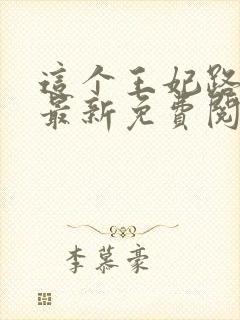 這个王妃路
最新免費閱
李慕豪